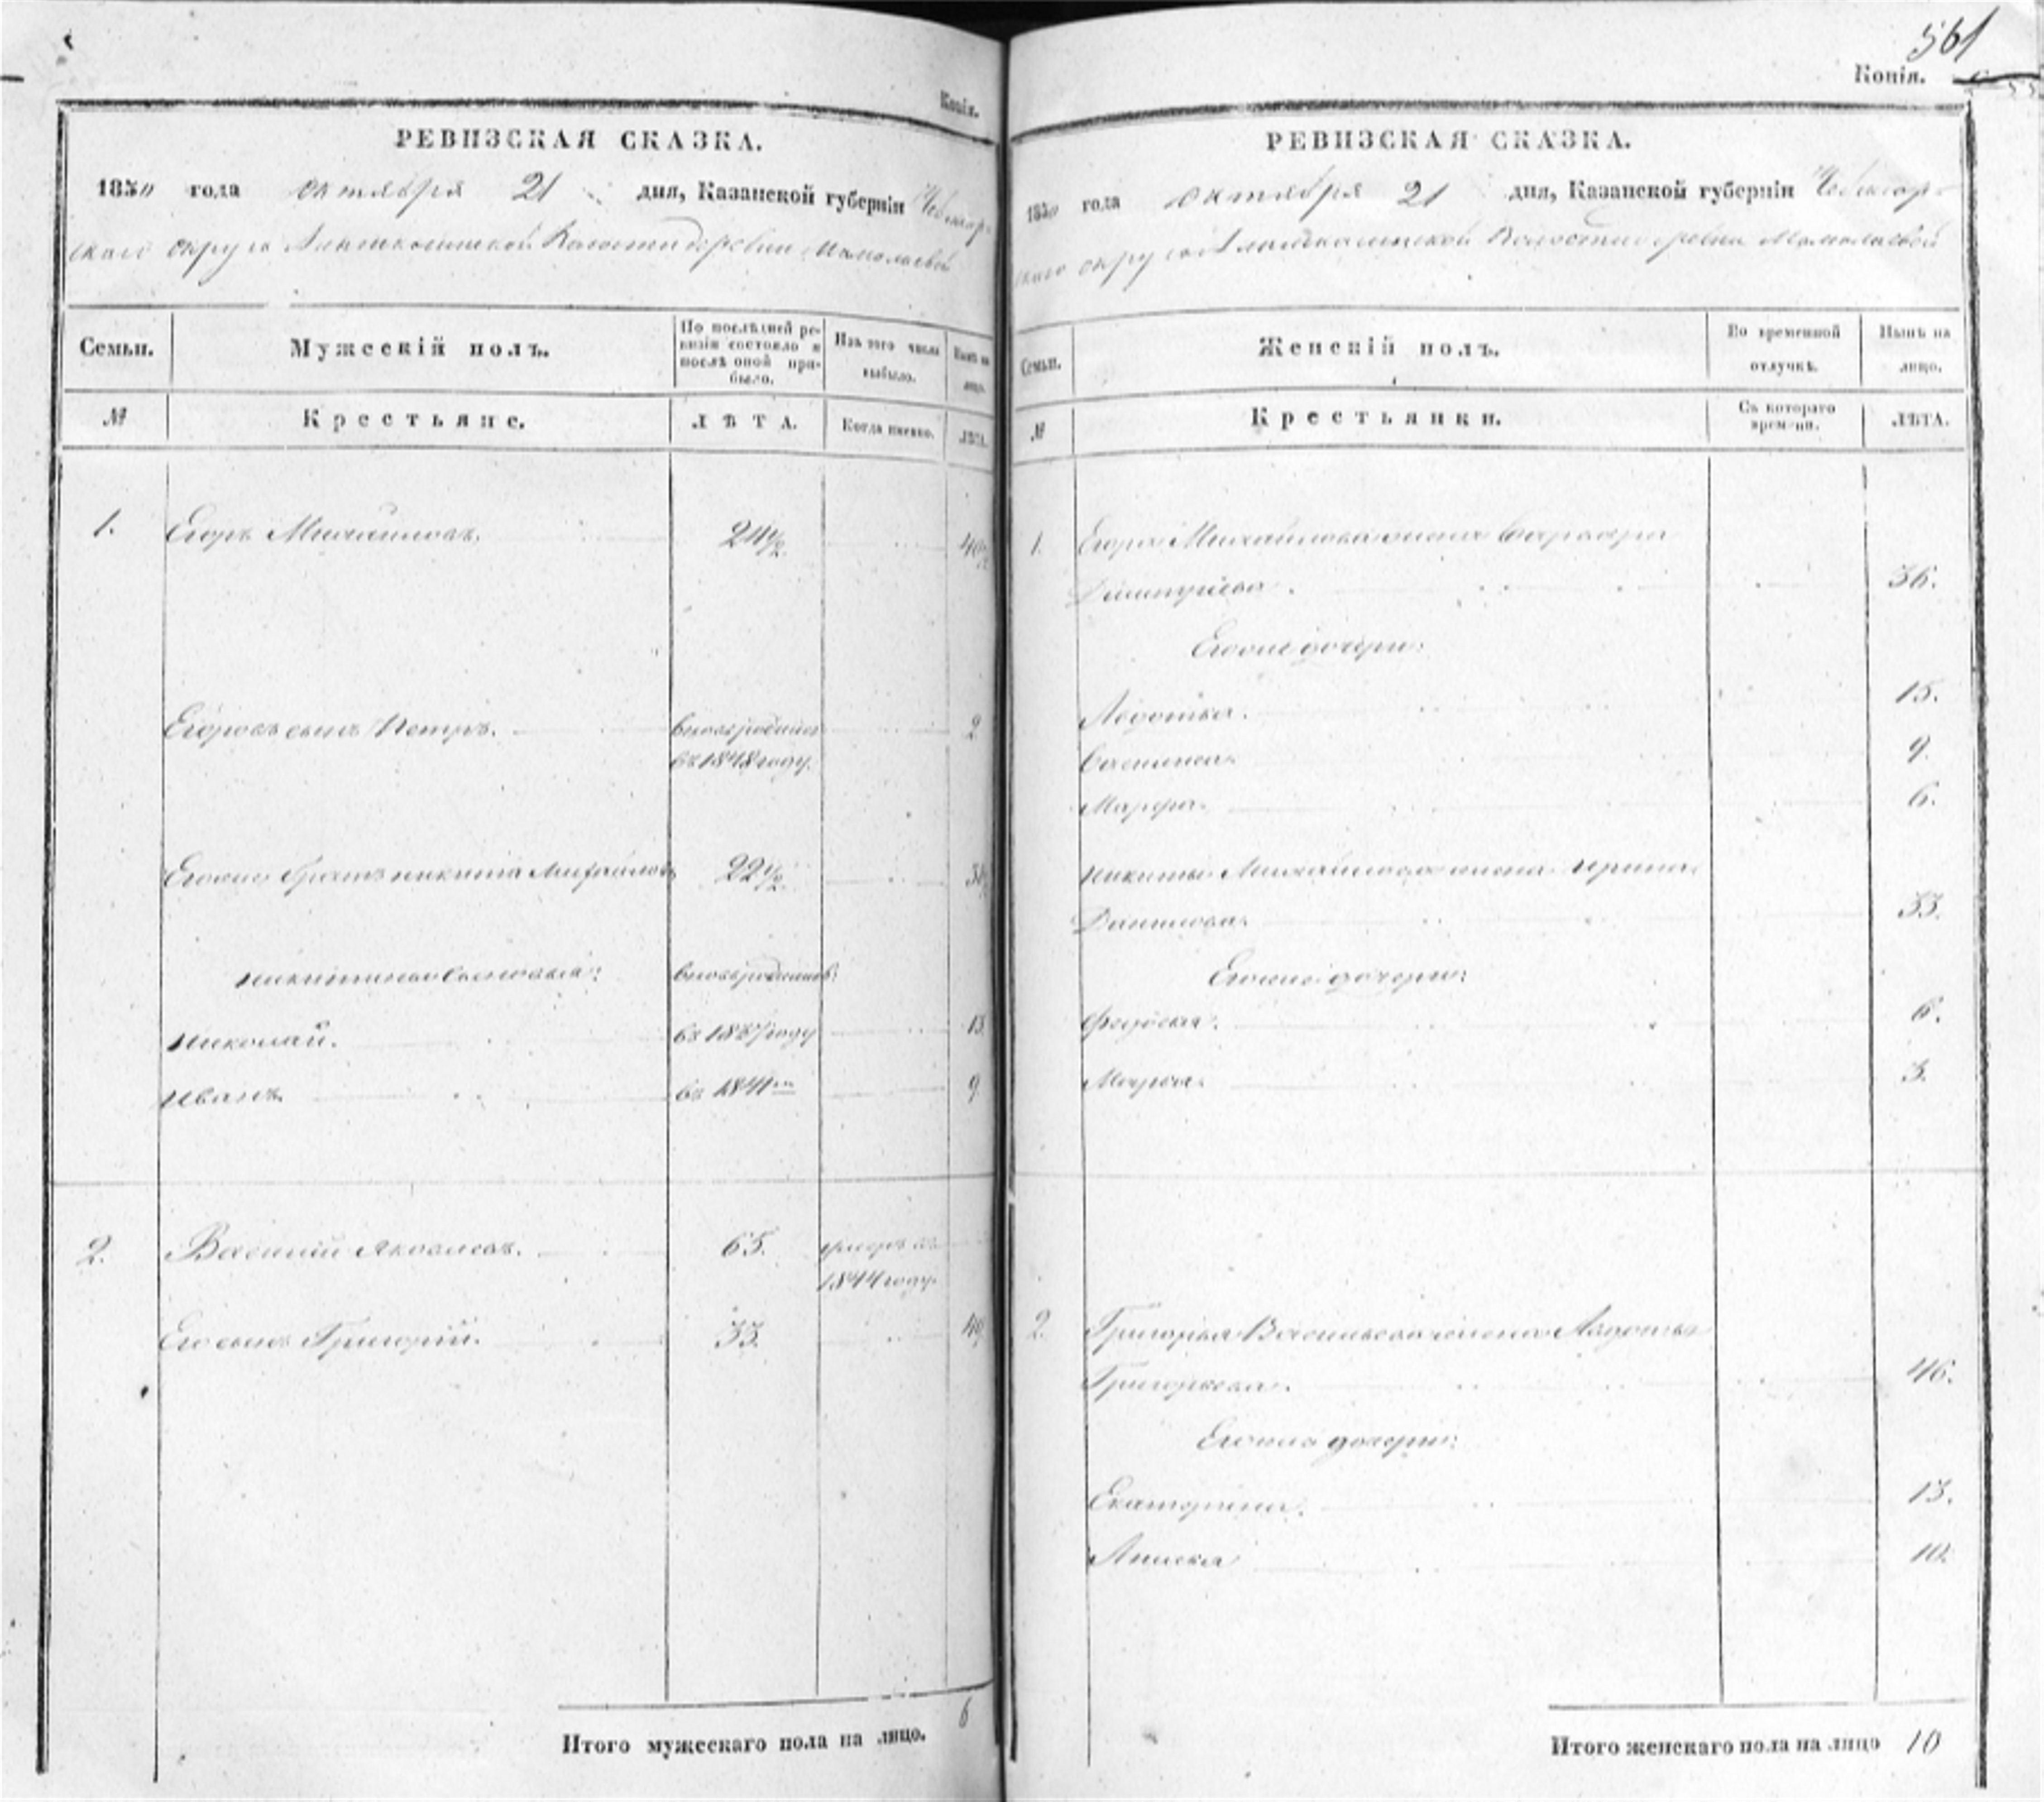 Копія.
РЕВИЗСКАЯ СКАЗКА.
1850 года октября 21 дня, Казанской губерніи Чебоксар-
скаго округа Волости деревни Мамалаевой
Семьи.
Мужескій полъ.
По послѣдней ре-
визіи состояло и
послѣ оной при-
было.
Изъ того числа
выбыло.
Нынѣ на
лицо.
№
Крестьяне.
ЛѢТА.
Когда именно.
ЛѢТА.
1. Егоръ Михайловъ. 24½ 40½
Егоровъ сынъ Петръ. вновь рожденъ 2
въ 1848 году.
Егоже братъ Никита Михайловъ 22½ 38½
Никитины сыновья: вновь рожденные:
Николай. въ 1837 году 13
Иванъ въ 1841мъ 9
2. Василій Яковлевъ. 65. умеръ въ
1844 году.
Его сынъ Григорій. 33. 49
Итого мужескаго пола на лицо. 6
561
Копія.
РЕВИЗСКАЯ СКАЗКА.
1850 года октября 21 дня, Казанской губерніи Чебоксар-
скаго округа Волости деревни Мамалаевой
Семьи.
Женскій полъ.
Во временной
отлучкѣ.
Нынѣ на
лицо.
№
Крестьянки.
Съ котораго
времени.
ЛѢТА.
1. Егора Михайлова жена Варвара
Дмитріева. 36.
Егоже дочери:
Авдотья. 15.
Василиса. 9.
Марфа. 6.
Никиты Михайлова жена Ирина
Данилова. 33.
Егоже дочери:
Федосья. 6.
Марья. 3.
2. Григорья Васильева жена Авдотья
Григорьева. 46.
Егоже дочери:
Екатерина. 13.
Аниска 10.
Итого женскаго пола на лицо 10